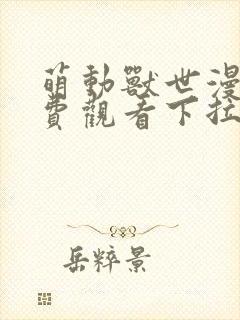 萌動獸世漫
費觀看下拉
岳粹景